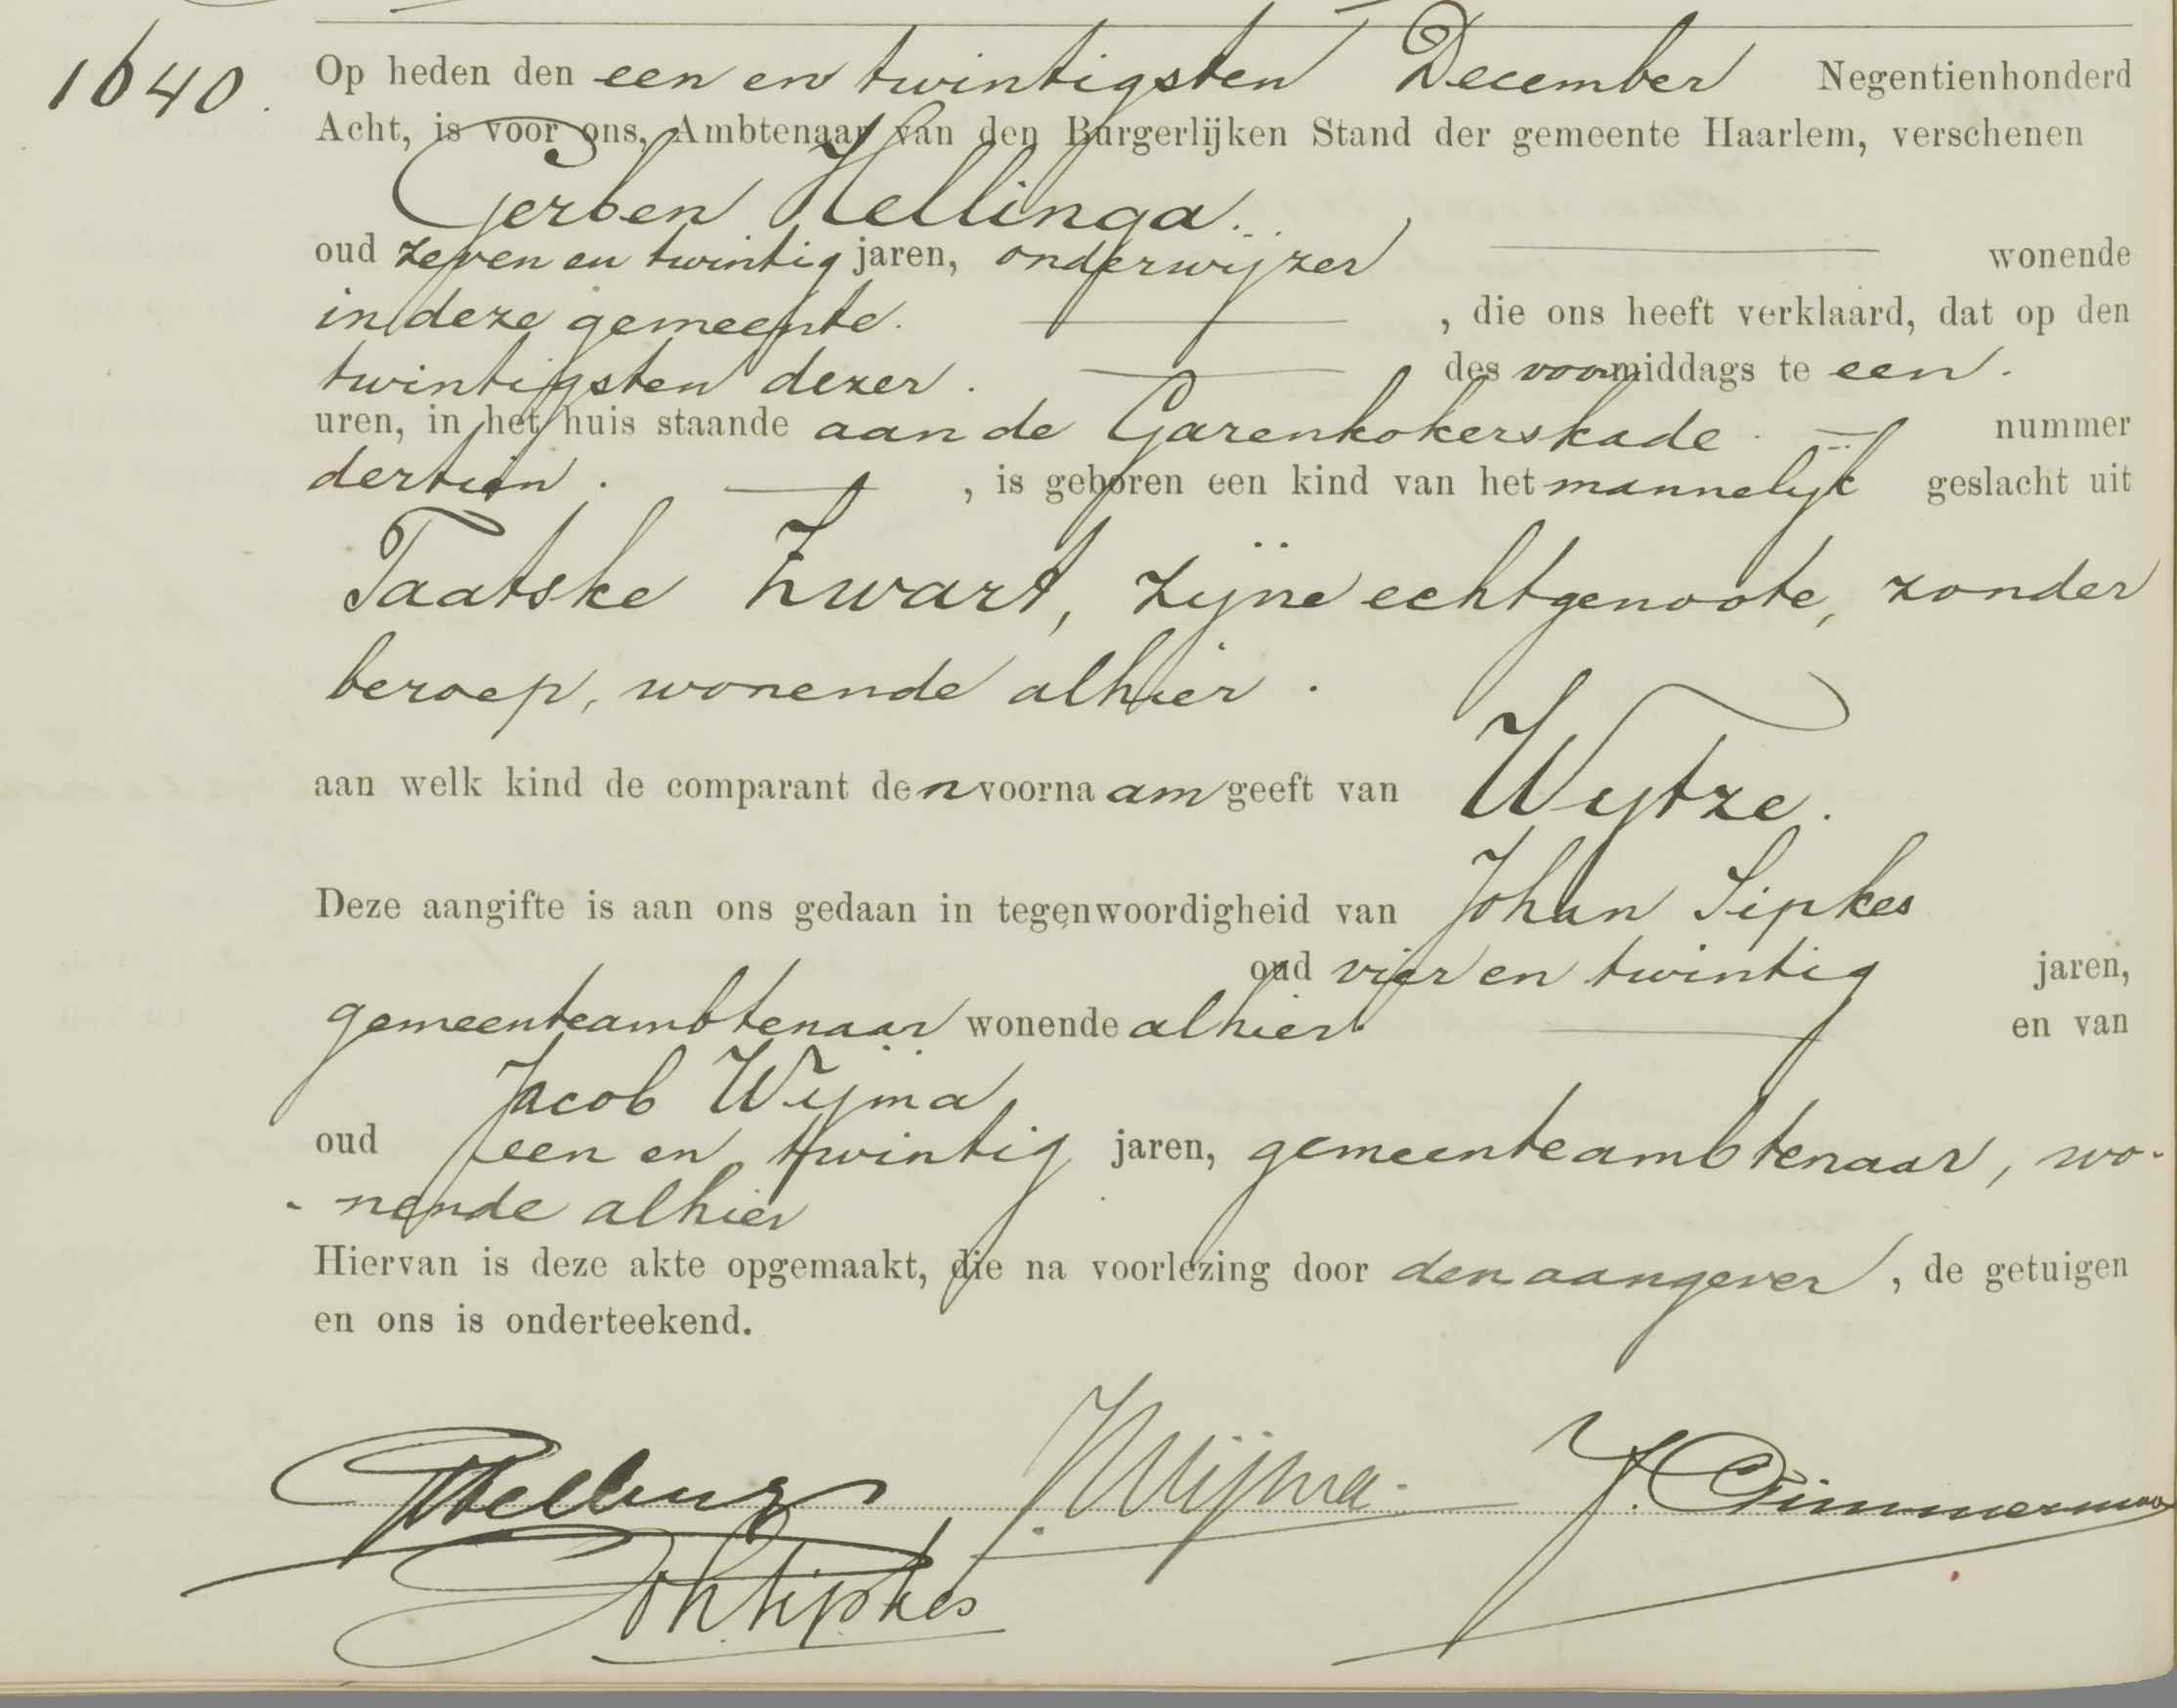 1640.
Op heden den een en twintigsten December Negentienhonderd
Acht, is voor ons, Ambtenaar van den Burgerlijken Stand der gemeente Haarlem, verschenen
Gerben Hellinga
oud zeven en twintig jaren, onderwijzer wonende
in deze gemeente. , die ons heeft verklaard, dat op den
twintigsten dezer. des voormiddags te een.
uren, in het huis staande aan de Garenkokerskade nummer
dertien. , is geboren een kind van het mannelijk geslacht uit
Taatske Zwart, zijne echtgenoote, zonder
beroep, wonende alhier.
aan welk kind de comparant den voornaam geeft van Wytze.
Deze aangifte is aan ons gedaan in tegenwoordigheid van Johan Sipkes
oud vier en twintig jaren,
gemeenteambtenaar wonende alhier en van
Jacob Wijma
oud een en twintig jaren, gemeenteambtenaar, wo-
- nende alhier
Hiervan is deze akte opgemaakt, die na voorlezing door den aangever, de getuigen
en ons is onderteekend.
GHellinga JWijma. J. Timmerman
Joh Sipkes